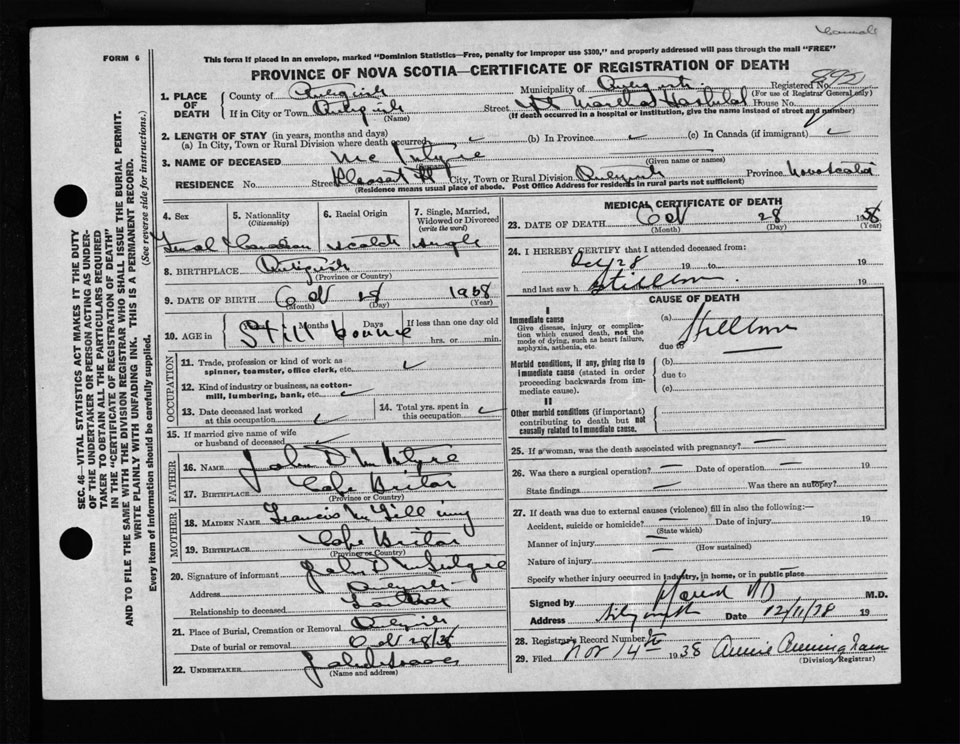 FORM 6
This form if placed in an envelope, marked "Dominion Statistics—Free, penalty for improper use $300," and properly addressed will pass through the mail "FREE"
PROVINCE OF NOVA SCOTIA—CERTIFICATE OF REGISTRATION OF DEATH
1. PLACE OF DEATH
County of
Municipality of
Registered No.
(For use of Registrar General only)
If in City or Town
(Name)
Street St Martha Hospital House No.
(If death occurred in a hospital or institution, give the name instead of street and number)
2. LENGTH OF STAY (in years, months and days)
(a) In City, Town or Rural Division where death occurred
(b) In Province
(c) In Canada (if immigrant)
3. NAME OF DECEASED Mc Intyre
(Given name or names)
RESIDENCE No. Street Pleasant St City, Town or Rural Division Province Nova Scotia
(Residence means usual place of abode. Post Office Address for residents in rural parts not sufficient)
4. Sex
5. Nationality
(Citizenship)
6. Racial Origin
7. Single, Married, Widowed or Divorced
(write the word)
Canadian Scotch Single
8. BIRTHPLACE Antigonish
(Province or Country)
9. DATE OF BIRTH Oct 28 1938
(Month) (Day) (Year)
10. AGE in Still bourne
Months Days If less than one day old
hrs. or min.
OCCUPATION
11. Trade, profession or kind of work as
spinner, teamster, office clerk, etc.
12. Kind of industry or business, as cotton-
mill, lumbering, bank, etc.
13. Date deceased last worked
at this occupation
14. Total yrs. spent in
this occupation
15. If married give name of wife
or husband of deceased
FATHER
16. NAME John D McIntyre
17. BIRTHPLACE Cape Breton
(Province or Country)
MOTHER
18. MAIDEN NAME
19. BIRTHPLACE Cape Breton
(Province or Country)
20. Signature of informant John D McIntyre
Address
Relationship to deceased Father
21. Place of Burial, Cremation or Removal
Date of burial or removal Oct 28/38
22. UNDERTAKER
(Name and address)
MEDICAL CERTIFICATE OF DEATH
23. DATE OF DEATH Oct 28 1938
(Month) (Day) (Year)
24. I HEREBY CERTIFY that I attended deceased from:
Oct 28 19 to 19
and last saw h Stillborn 19
CAUSE OF DEATH
I
Immediate cause
Give disease, injury or complica-
tion which caused death, not the
mode of dying, such as heart failure,
asphyxia, asthenia, etc.
(a) Stillborn
due to
Morbid conditions, if any, giving rise to
immediate cause (stated in order
proceeding backwards from im-
mediate cause).
(b)
due to
(c)
II
Other morbid conditions (if important)
contributing to death but not
causally related to immediate cause.
25. If a woman, was the death associated with pregnancy?
26. Was there a surgical operation? Date of operation 19
State findings Was there an autopsy?
27. If death was due to external causes (violence) fill in also the following:—
Accident, suicide or homicide? Date of injury 19
(State which)
Manner of injury
(How sustained)
Nature of injury
Specify whether injury occurred in industry, in home, or in public place
Signed by M.D.
Address Date 12/11/38 19
28. Registrar's Record Number
29. Filed Nov 14th 1938 Annie Cunningham
(Division Registrar)
SEC. 46—VITAL STATISTICS ACT MAKES IT THE DUTY
OF THE UNDERTAKER OR PERSON ACTING AS UNDER-
TAKER TO OBTAIN ALL THE PARTICULARS REQUIRED
IN THE "CERTIFICATE OF REGISTRATION OF DEATH"
AND TO FILE THE SAME WITH THE DIVISION REGISTRAR WHO SHALL ISSUE THE BURIAL PERMIT.
WRITE PLAINLY WITH UNFADING INK. THIS IS A PERMANENT RECORD.
Every item of information should be carefully supplied. (See reverse side for instructions.)